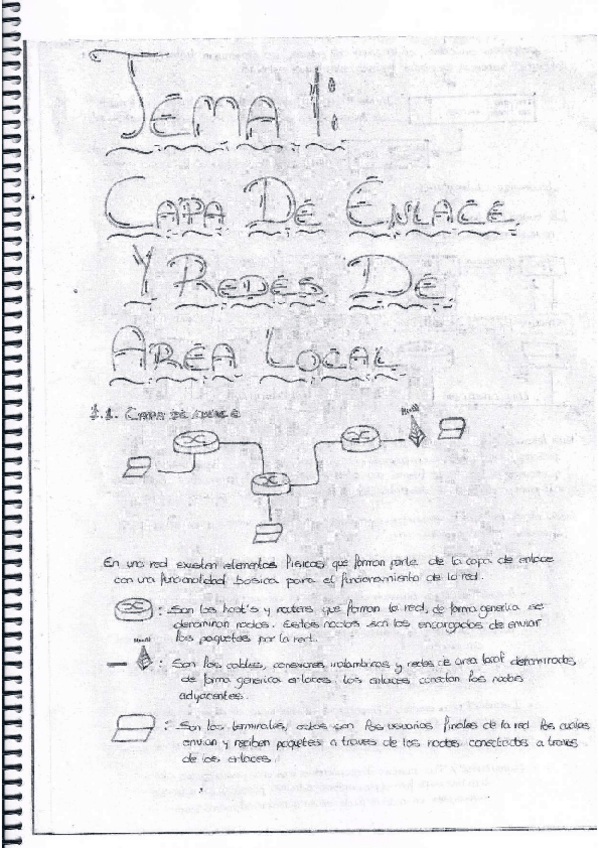 Tema 1:
Capa De Enlace
Y Redes De
Area Local
1.1. Capa de enlace
En una red existen elementos fisicos que forman parte de la capa de enlace
con una funcionalidad basica para el funcionamiento de la red.
: Son los host's y routers que forman la red, de forma generica se
denominan nodos. Estos nodos son los encargados de enviar
los paquetes por la red.
: Son los cables, conexiones inalambricas y redes de area local denominados
de forma generica enlaces. Los enlaces conectan los nodos
adyacentes.
: Son los terminales, estos son los usuarios finales de la red los cuales
envian y reciben paquetes a traves de los nodos conectados a traves
de los enlaces.